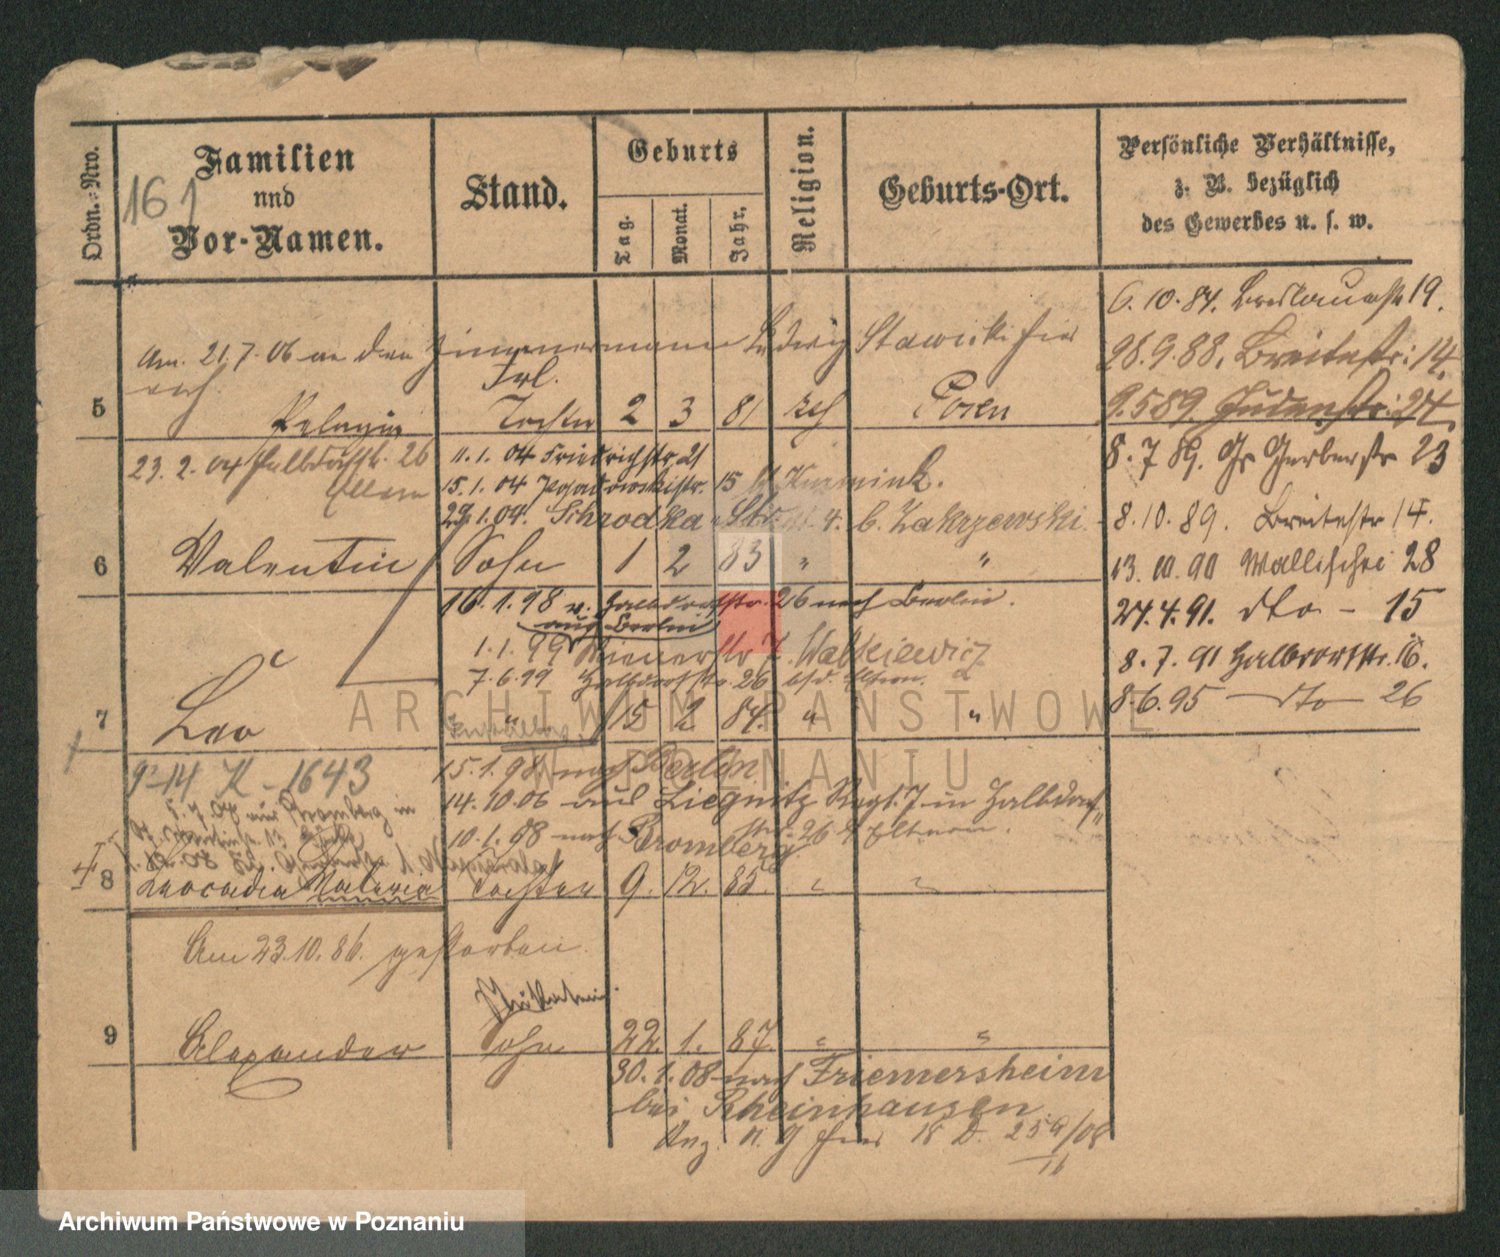 Ordn.-Nro.
Familien
und
Vor-Namen.
161
Stand.
Geburts
Tag.
Monat.
Jahr.
Religion.
Geburts-Ort.
Persönliche Verhältnisse,
z. B. bezüglich
des Gewerbes u. s. w.
6.10.84. Breslauerstr 19.
Am 21.7.06 an den Zimmermann Ludwig Stawicki hier
verh.
28.9.88. Breitestr: 14.
Frl.
5 Pelagia Tochter 2 3 81 kth Posen
9.5 89 Judenstr: 27.
23.2.04 Halbdorfstr. 26
Eltern
11.1.04 Friedrichstr. 21
8.7 89. Gr Gerberstr 23
15.1.04 15
29.1.04. Schrodka 4. b. Zakrzewski.
8.10.89. Breitestr 14.
6 Valentin Sohn 1 2 83 " "
13.10.90 Wallischei 28
16.1.98 v. Halbdorfstr. 26 nach Berlin.
aus Berlin
27.4.91. dto - 15
1.1.99 Wienerstr 7. Walkiewicz
8.7.91 Halbdorfstr. 16.
7.6.99 Halbdorfstr. 26 b/d. Eltern.
8.6.95 dto 26
7 Leo " 15 2 84. " "
ARCHIWUM PAŃSTWOWE
W POZNANIU
9-14 K-1643
15.1.98 nach Berlin
14.10.06 aus Liegnitz Regt. 7 in Halbdorf
str. 26 b Eltern.
10.1.08 nach Bromberg
8 Leocadia Valeria Tochter 9. 12. 85. " "
Am 23.10.86. gestorben.
9 Alexander Sohn 22. 1. 87. " "
30.1.08 nach Friemersheim
bei Rheinhausen
Archiwum Państwowe w Poznaniu